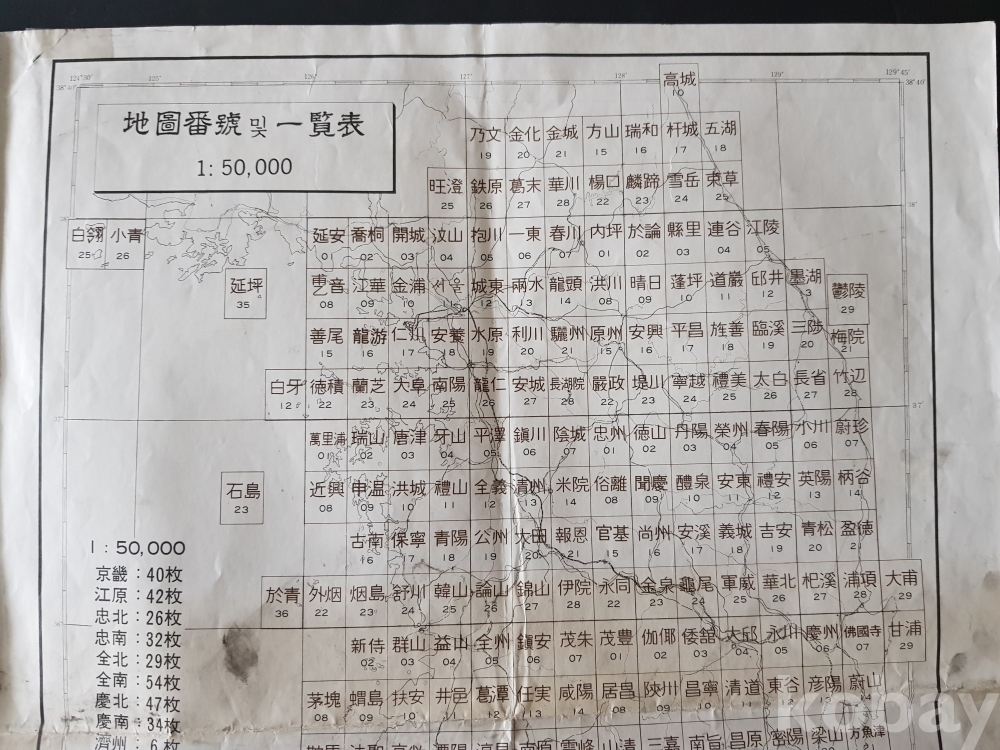 124°30' 125° 126° 127° 128° 129° 129°45'
38°40' 38°40'
地圖番號 및 一覽表
1: 50,000
高城
10
乃文 金化 金城 方山 瑞和 杆城 五湖
19 20 21 15 16 17 18
旺澄 鉄原 葛末 華川 楊口 麟蹄 雪岳 束草
25 26 27 28 22 23 24 25
白翎 小青 延安 喬桐 開城 汶山 抱川 一東 春川 内坪 於論 縣里 連谷 江陵
25 26 01 02 03 04 05 06 07 01 02 03 04 05
延坪 江華 金浦 서울 城東 兩水 龍頭 洪川 晴日 蓬坪 道巖 邱井 墨湖 鬱陵
35 08 09 10 12 13 14 08 09 10 11 12 13 29
善尾 龍游 仁川 安養 水原 利川 驪州 原州 安興 平昌 旌善 臨溪 三陟 梅院
15 16 17 18 19 20 21 15 16 17 18 19 20 21
白牙 徳積 蘭芝 大阜 南陽 龍仁 安城 長湖院 嚴政 堤川 寧越 禮美 太白 長省 竹辺
12 22 23 24 25 26 27 28 22 23 24 25 26 27 28
萬里浦 瑞山 唐津 牙山 平澤 鎭川 陰城 忠州 徳山 丹陽 榮州 春陽 小川 蔚珍
01 02 03 04 05 06 07 01 02 03 04 05 06 07
石島 近興 洪城 禮山 全義 清州 米院 俗離 聞慶 醴泉 安東 禮安 英陽 柄谷
23 08 09 10 11 12 13 14 08 09 10 11 12 13 14
古南 保寧 青陽 公州 大田 報恩 官基 尚州 安溪 義城 吉安 青松 盈徳
16 17 18 19 20 21 15 16 17 18 19 20 21
於青 外烟 烟島 舒川 韓山 論山 錦山 伊院 永同 金泉 龜尾 軍威 華北 杞溪 浦項 大甫
36 22 23 24 25 26 27 28 22 23 24 25 26 27 28 29
新侍 群山 益山 全州 鎭安 茂朱 茂豊 伽倻 倭舘 大邱 永川 慶州 佛國寺 甘浦
02 03 04 05 06 07 01 02 03 04 05 06 07 29
茅塊 蝟島 扶安 井邑 葛潭 任実 咸陽 居昌 陜川 昌寧 清道 東谷 彦陽 蔚山
08 09 10 11 12 13 14 08 09 10 11 12 13 14
法聖 潭陽 南原 雲峰 山清 三嘉 南旨 昌原 密陽 梁山 方魚津
1 : 50,000
京畿 : 40枚
江原 : 42枚
忠北 : 26枚
忠南 : 32枚
全北 : 29枚
全南 : 54枚
慶北 : 47枚
慶南 : 34枚
濟州 : 6枚
kobay